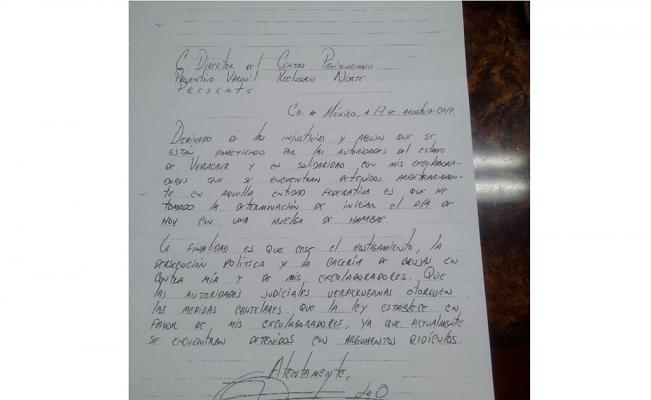 C. Director del Centro Penitenciario
Preventivo Varonil Reclusorio Norte
Presente
Cd. de México, a 17 de agosto de 2017
Derivado de las injusticias y abusos que se
están cometiendo por las autoridades del estado
de Veracruz y en solidaridad con mis excolabora-
dores que se encuentran detenidos arbitrariamen-
te en aquella entidad federativa es que he
tomado la determinación de iniciar el día de
hoy con una huelga de hambre.
La finalidad es que cese el hostigamiento, la
persecución política y la cacería de brujas en
contra mía y de mis excolaboradores. Que
las autoridades judiciales veracruzanas otorguen
las medidas cautelares que la ley establece en
favor de mis excolaboradores, ya que actualmente
se encuentran detenidos con argumentos ridículos.
Atentamente,
de O.